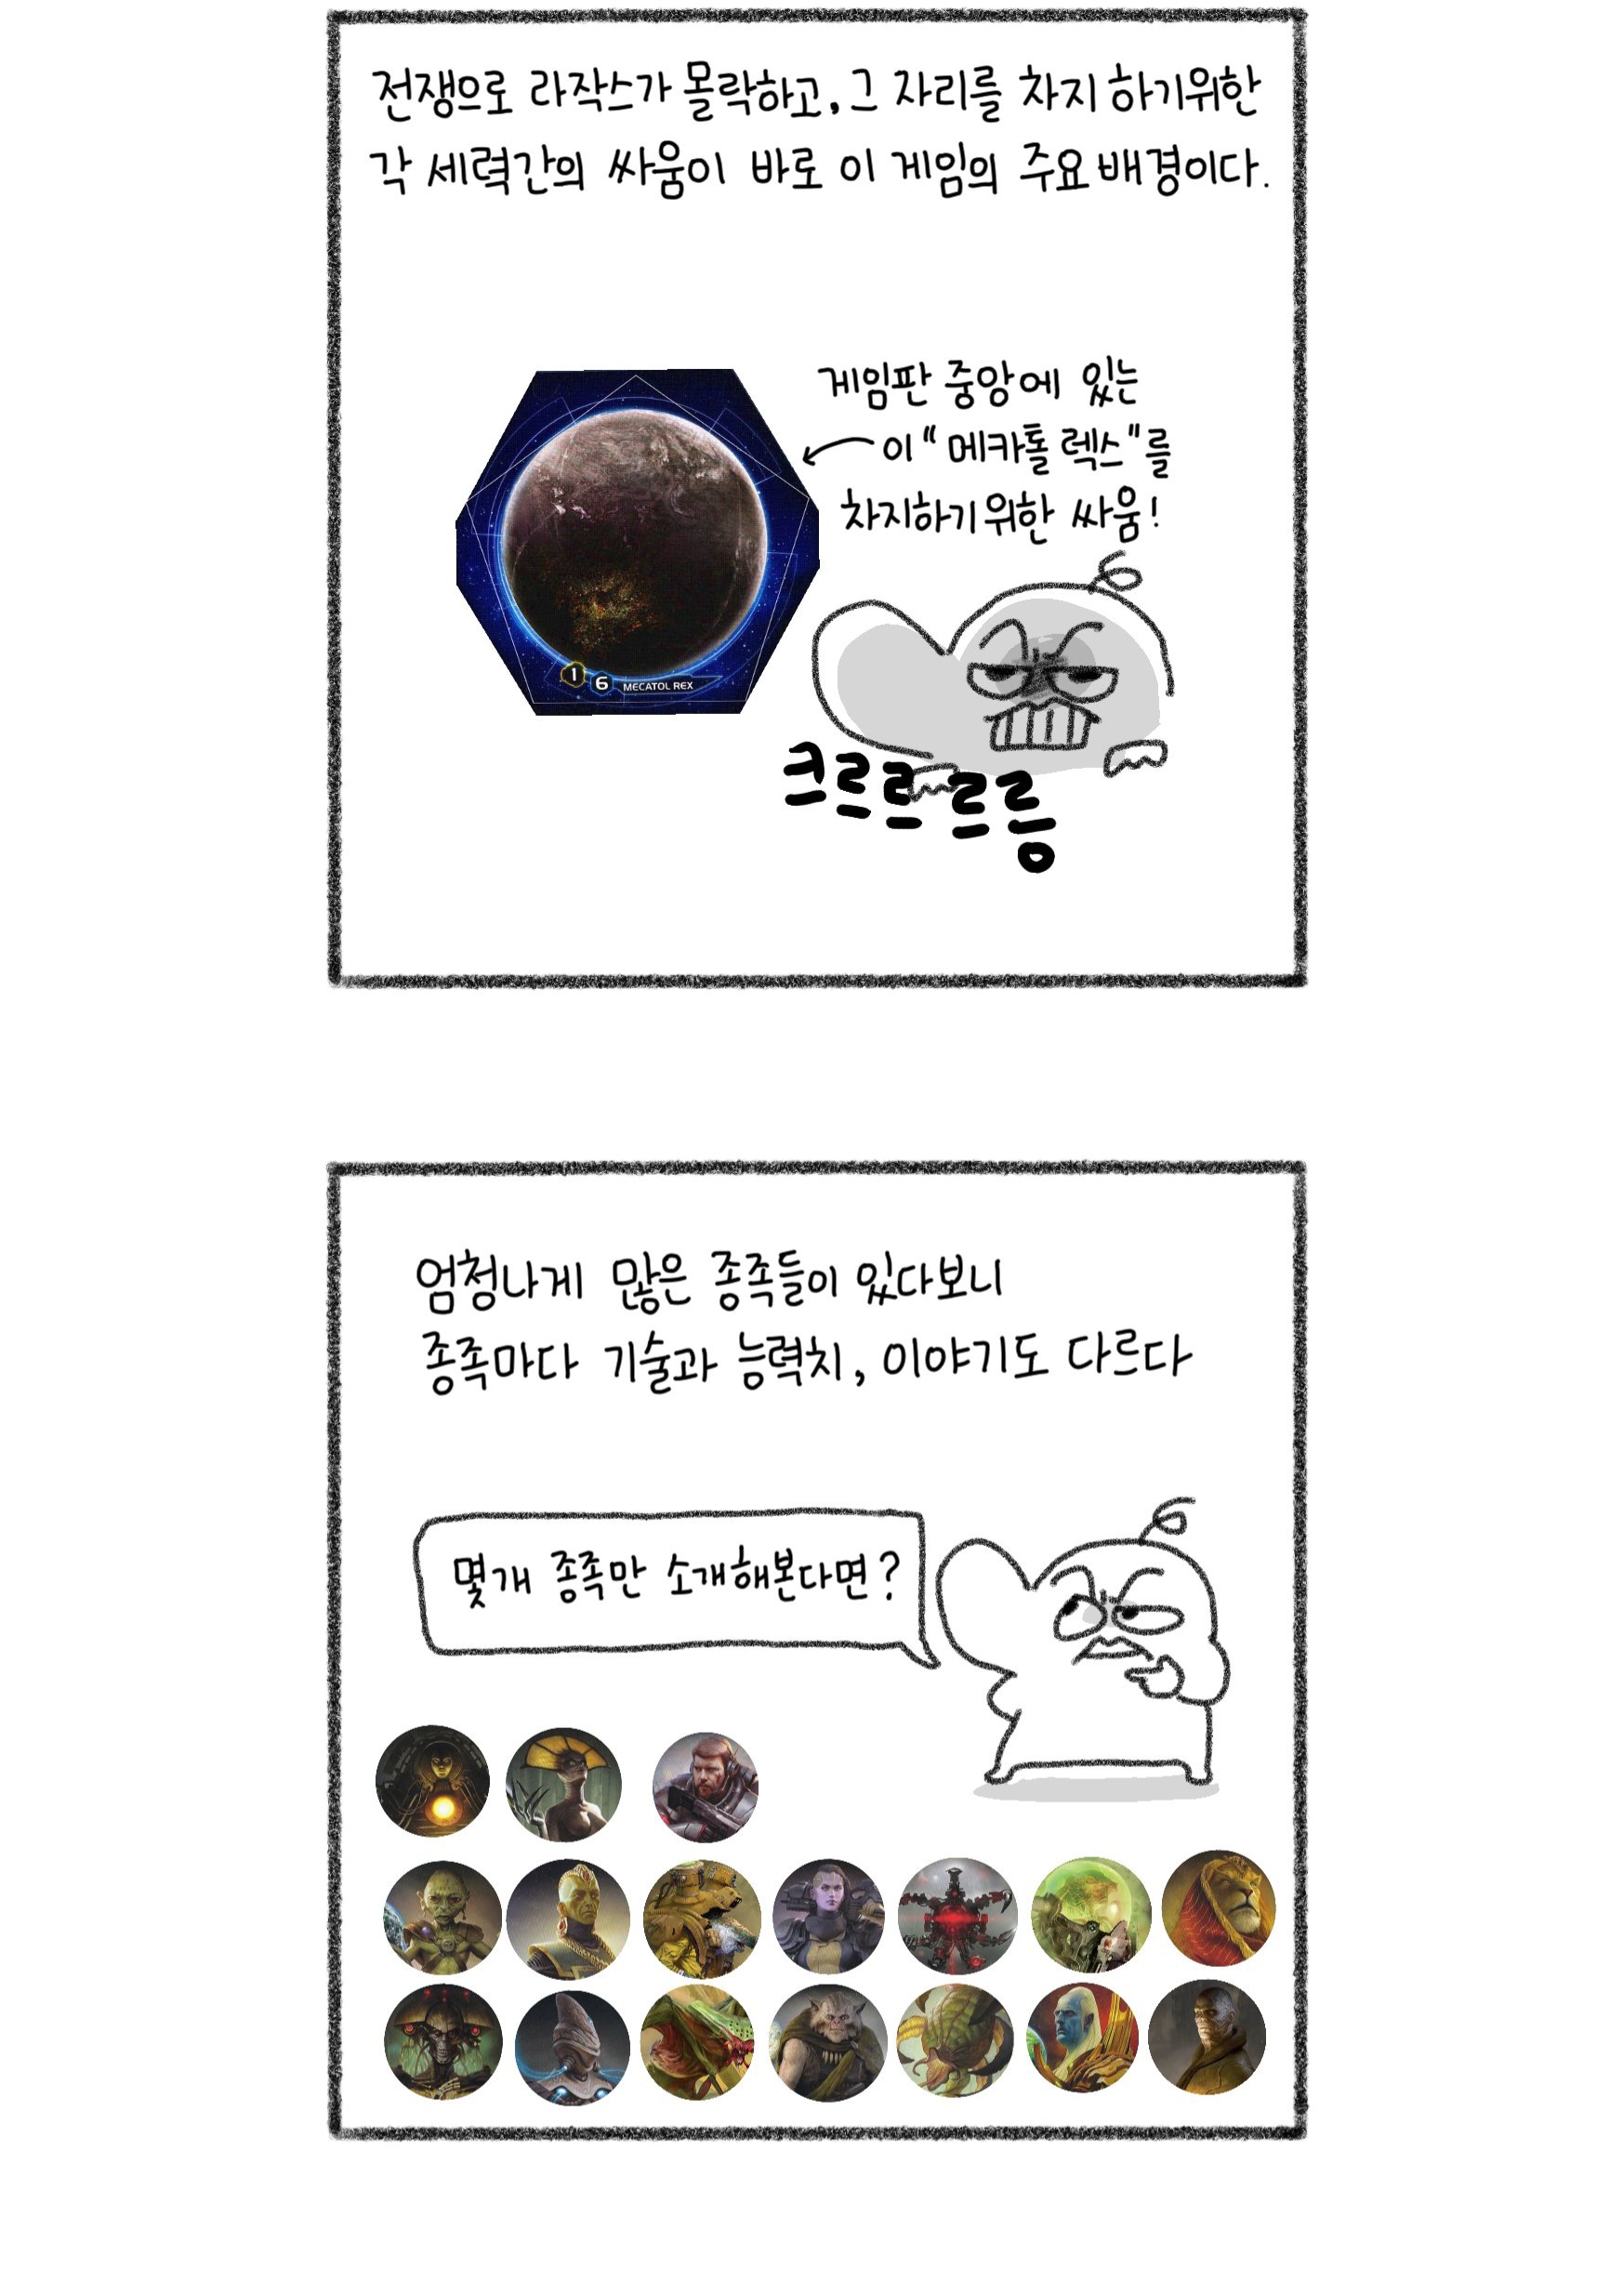 전쟁으로 라작스가 몰락하고, 그 자리를 차지 하기위한
각 세력간의 싸움이 바로 이 게임의 주요 배경이다.
게임판 중앙에 있는
이 "메카톨 렉스"를
차지하기 위한 싸움!
1 6 MECATOL REX
크르르르릉
엄청나게 많은 종족들이 있다보니
종족마다 기술과 능력치, 이야기도 다르다
몇개 종족만 소개해본다면?